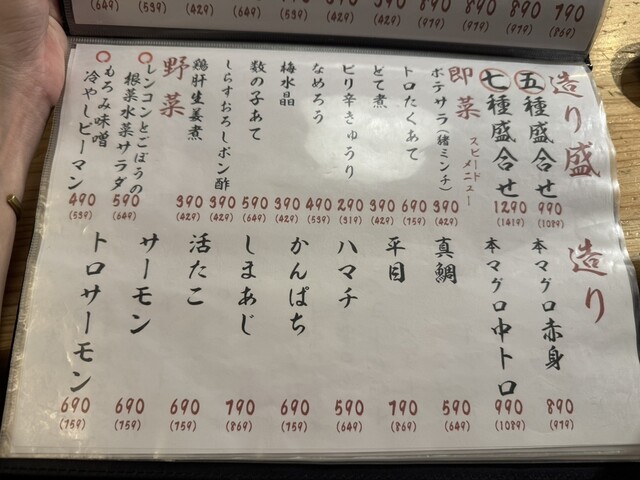 造り盛
五種盛合せ
990
(1089)
七種盛合せ
1290
(1419)
即菜
スピードメニュー
ポテサラ(猪ミンチ)
390
(429)
トロたくあて
690
(759)
どて煮
390
(429)
ピリ辛きゅうり
290
(319)
なめろう
490
(539)
梅水晶
390
(429)
数の子あて
590
(649)
しらすおろしポン酢
390
(429)
鶏肝生姜煮
390
(429)
野菜
レンコンとごぼうの
根菜水菜サラダ
590
(649)
もろみ味噌
冷やしピーマン
490
(539)
造り
本マグロ赤身
890
(979)
本マグロ中トロ
990
(1089)
真鯛
590
(649)
平目
790
(869)
ハマチ
590
(649)
かんぱち
690
(759)
しまあじ
790
(869)
活たこ
690
(759)
サーモン
690
(759)
トロサーモン
690
(759)